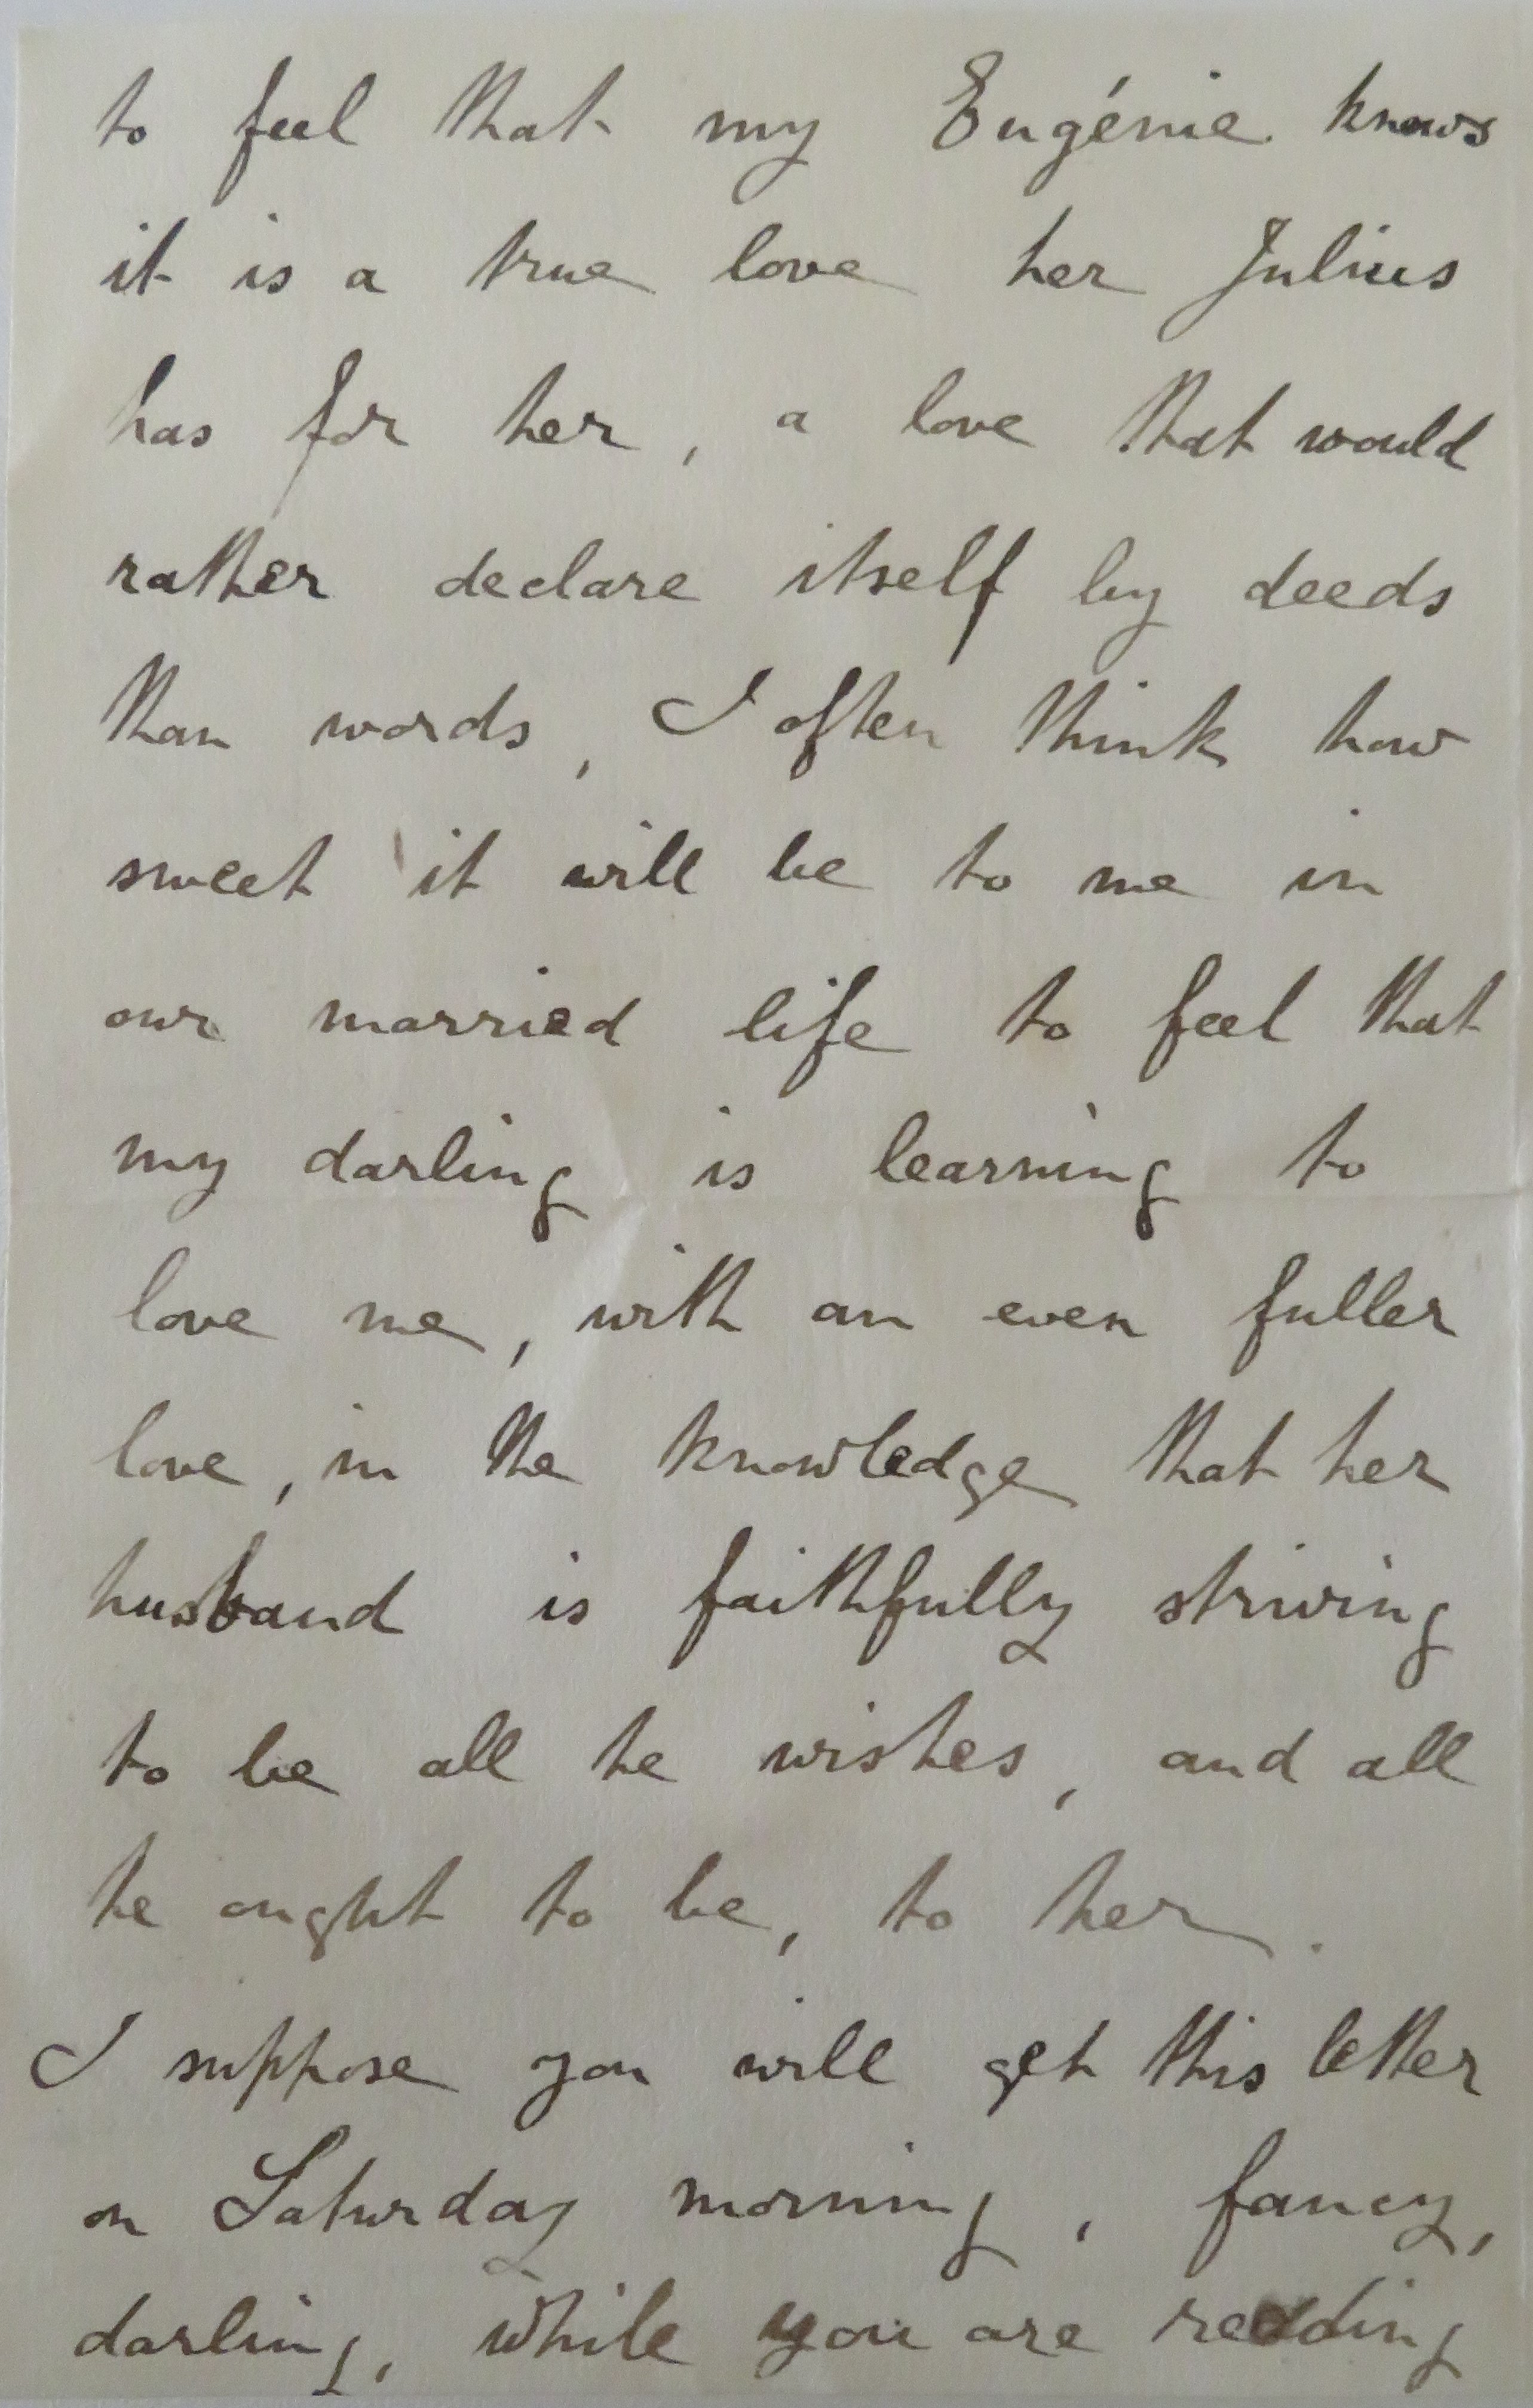 to feel that my Eugénie knows
it is a true love her Julius
has for her, a love that would
rather declare itself by deeds
than words, I often think how
sweet it will be to me in
our married life to feel that
my darling is learning to
love me, with an even fuller
love, in the knowledge that her
husband is faithfully striving
to be all he wishes, and all
he ought to be, to her.
I suppose you will get this letter
on Saturday morning, fancy,
darling, while you are reading